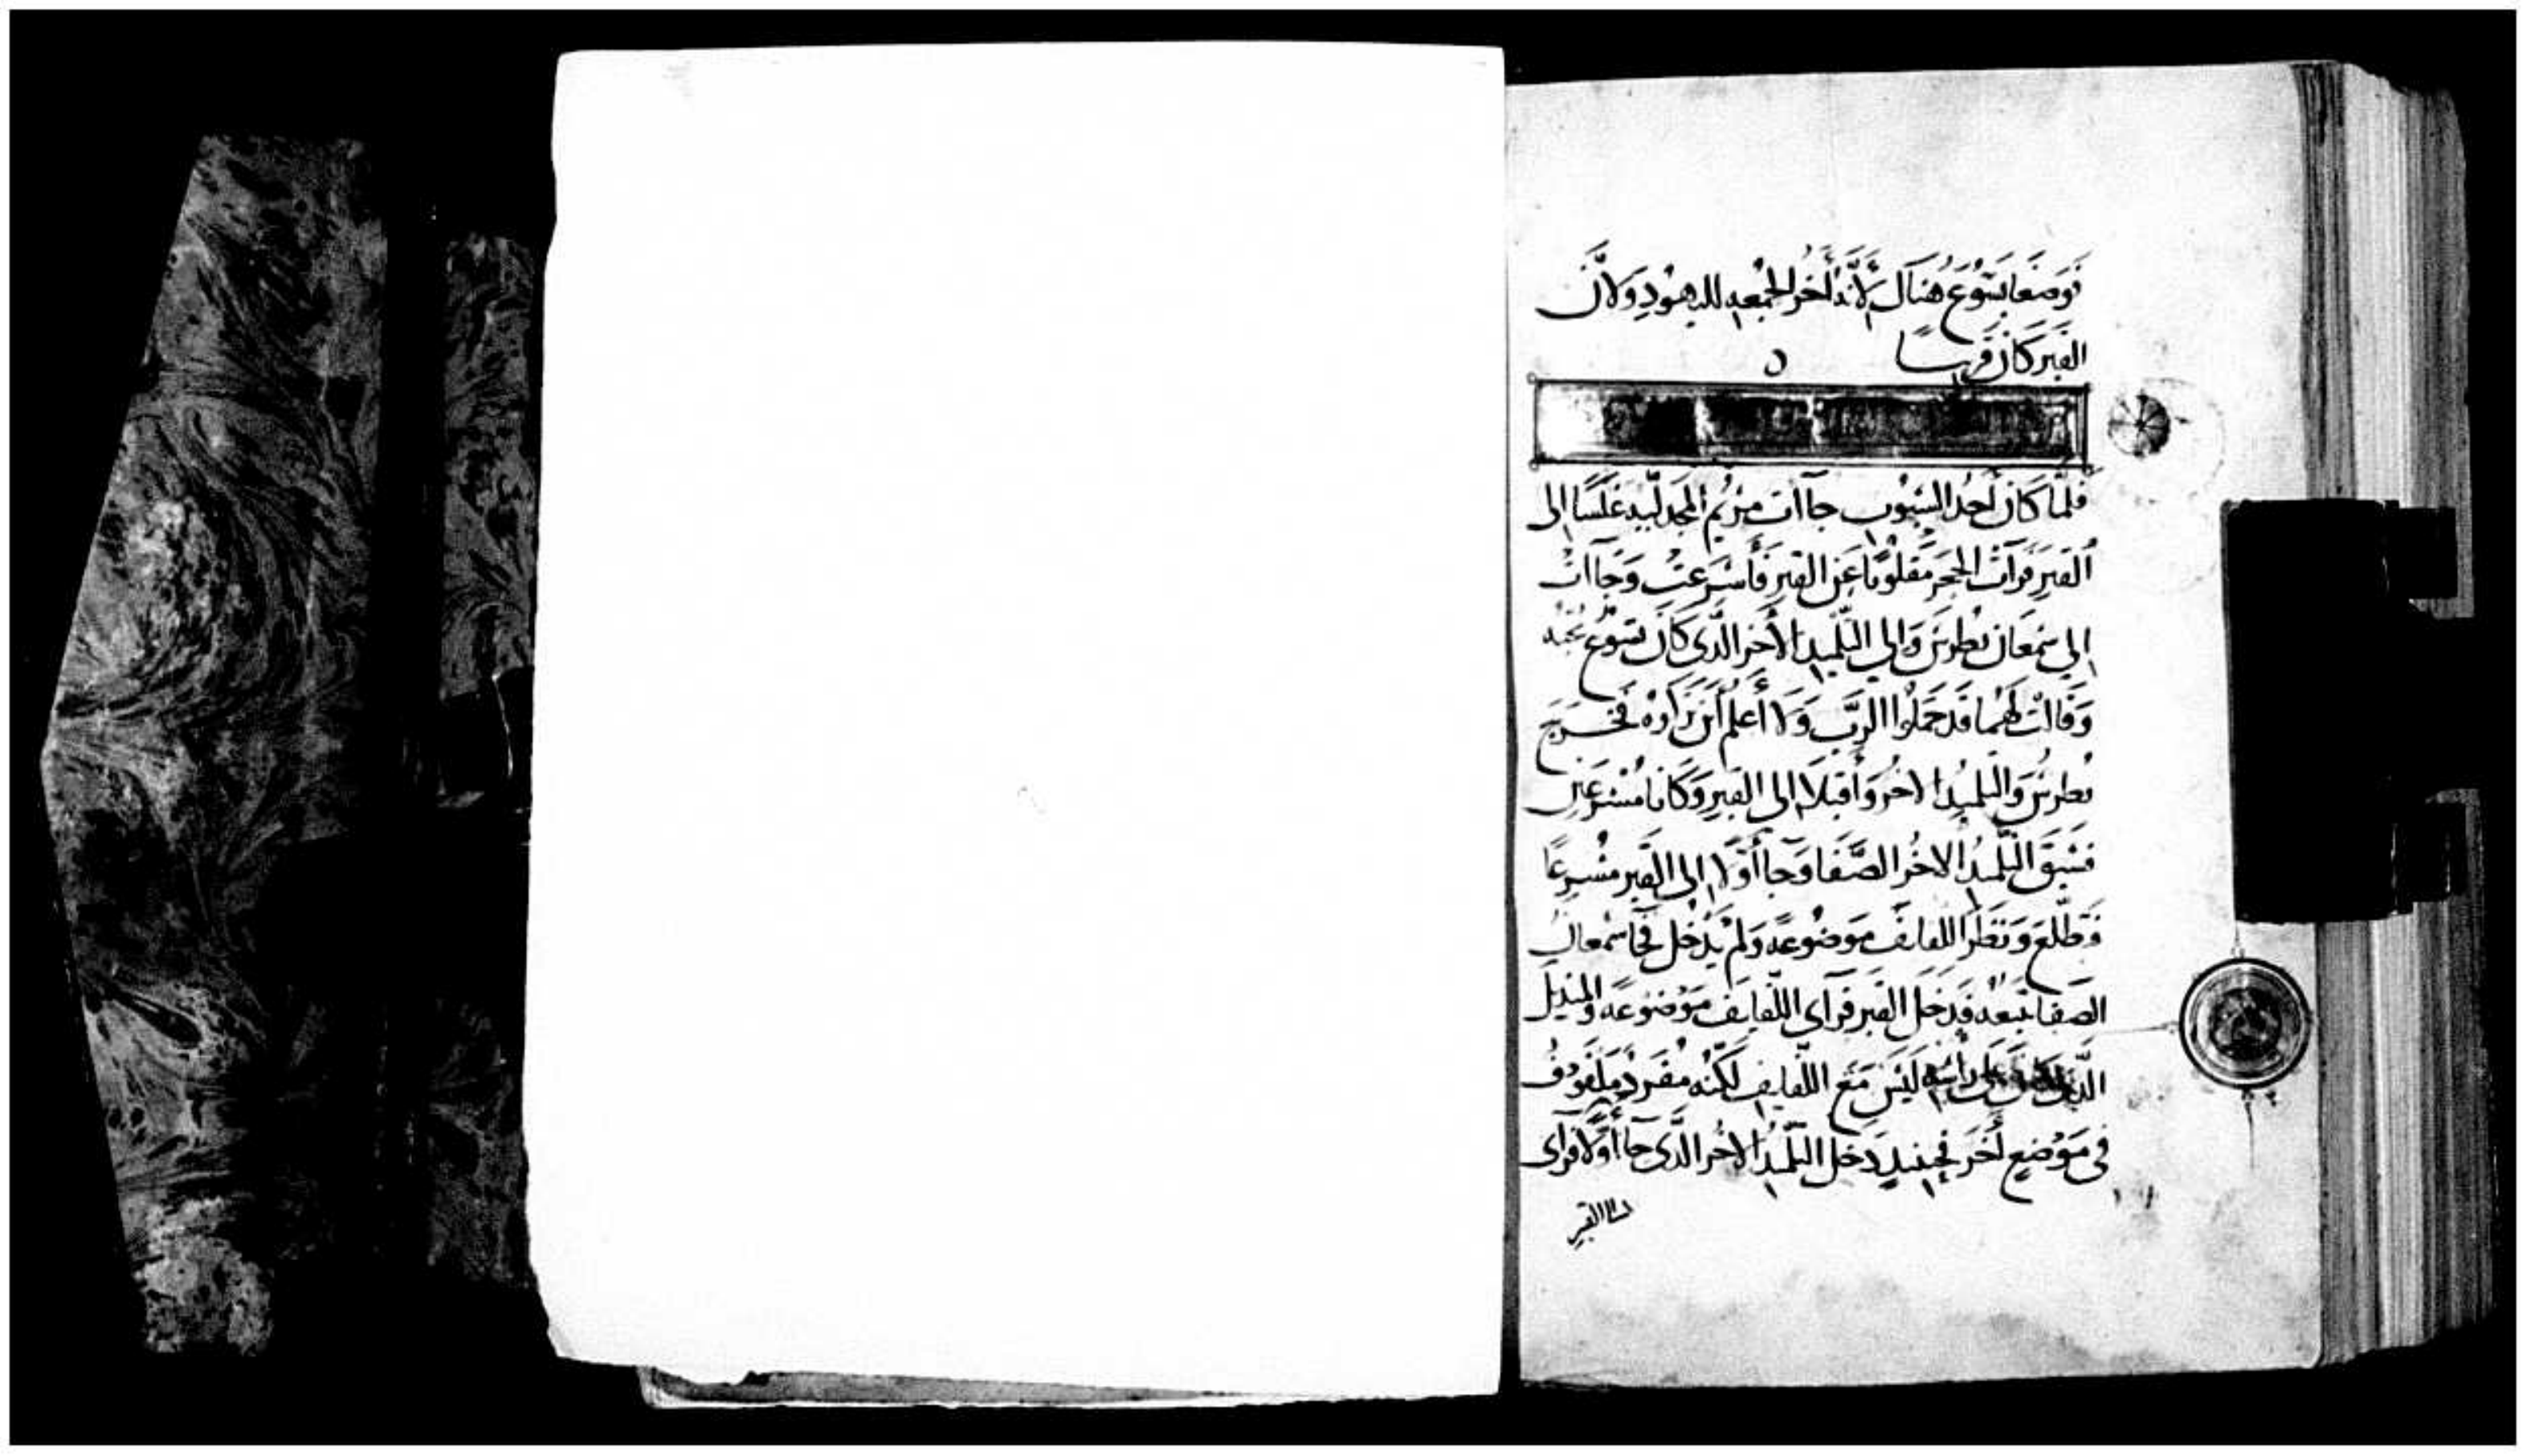 فَوَضَعَا يَسُوْعَ هُنَاكَ لِأَنَّهُ أَخَرُ الجُمْعَةِ لليهُوْدِ وَلأَنَّ
القَبرَ كَانَ قَرِيبًا ه
فَلَمَّا كَانَ أَحَدُ السُبُوْتِ جاآت مَرْيَمُ المَجدَلِّيَه غَلَسًا إِلى
اَلقَبرِ فَرَأَت الحَجَرَ مَقلُوْبًا عَنِ القَبرِ فَأَسْرَعَتْ وَجَاآتْ
إِلى سَمْعَان بُطرسَ وَإِلى التِّلْمِيذِ الأَخَر الَّذِى كَانَ يَسُوْعُ يُحِبُّه
وَقَالَتْ لَهُمَا قَد حَمَلُوا الرَبَّ وَلا أَعلَمُ أَينَ تَرَكُوهُ فَخَرَجَ
بُطرسُ وَالتِلمِيذُ الاخَرُ وَأَقبَلاَ إِلى القَبرِ وَكَانَا مُسْرِعَينِ
فَسَبَقَ التِّلْمِيذُ الاخَرُ الصَّفَا وَجَا أَوَّلاً إِلى القَبرِ مُسْرِعًا
فَتَطَلَّعَ وَنَظَرَ اللفايفَ مَوضُوعَه وَلَمْ يَدْخُل فَجَا سَمْعَان
الصَفا تَبَعُه فَدَخَلَ القَبرَ فَرَأَى اللَّفَايفَ مَوْضُوعَه وَالمِندِيلَ
الَّذِى رَاسِهِ لَيْسَ مَعَ اللَّفَايفِ لَكِنَّهُ مُفرَد مَلفُوْفُ
فى مَوْضِعٍ أَخَرَ فَحِينَيِذٍ دَخَلَ التِّلْمِيذُ الاخَرُ الَّذِى جَا أَوَّلاً فَرَأَى
القبر